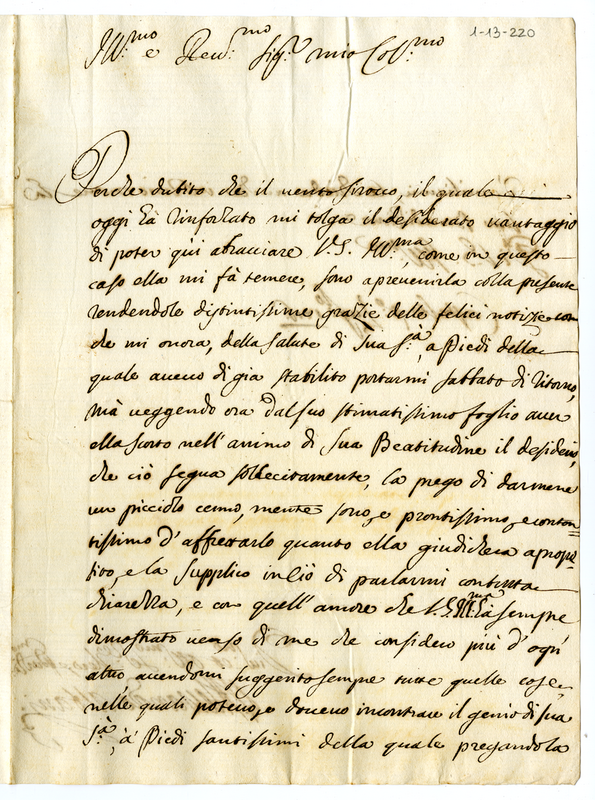 1-13-220
Ill:mo e Reu:mo Sig:r mio Col:mo
Perche dubito che il uento sirocco, il quale
oggi hà rinforzato mi tolga il desiderato uantaggio
di poter qui abracciare V.S. Ill:ma, come in questo
caso ella mi fà temere, sono a preuenirla colla presente
rendendole distintissime grazie delle felici notizie con
che mi onora, della salute di Sua S.tà, a Piedi della
quale aueuo di gia stabilito portarmi sabbato di ritorno,
mà ueggendo ora dal suo stimatissimo foglio auer
ella scorto nell'animo di Sua Beatitudine il desiderio,
che ciò segua sollecitamente, la prego di darmene
un picciolo cenno, mentre sono, e prontissimo, e conten=
tissimo d'affrettarlo quanto ella giudichera a propo=
sito, e la supplico in ciò di parlarmi con tutta
chiarezza, e con quell'amore che V.S. Ill:ma hà sempre
dimostrato uerso di me che considero più d'ogn'
altro, auendomi suggerito sempre tutte quelle cose,
nelle quali poteuo, e doueuo incontrare il genio di sua
S.tà, a' Piedi santissimi della quale pregandola